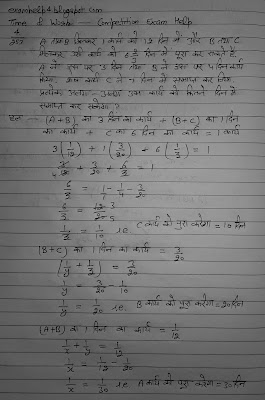 examhelp4.blogspot.com
Time & Work - Competition Exam Help
A तथा B मिलकर 1 कार्य को 12 दिन में और B तथा C
मिलकर इस कार्य को 6⅔ दिन में पूरा कर सकते हैं
A ने इस पर 3 दिन तथा B ने उस पर 4 दिन कार्य
किया, शेष कार्य C ने 7 दिन में समाप्त कर लिया
प्रत्येक अलग-अलग उस कार्य को कितने दिन में
समाप्त कर सकेगा ?
हल - (A+B) का 3 दिन का कार्य + (B+C) का 1 दिन
का कार्य + C का 6 दिन का कार्य = 1 कार्य
3(1/12) + 1(3/20) + 6(1/z) = 1
3/12 + 3/20 + 6/z = 1
6/z = 1 - 1/4 - 3/20
6/z = 12/20 3/5
1/z = 1/10 i.e. C कार्य को पूरा करेगा = 10 दिन
(B+C) का 1 दिन का कार्य = 3/20
(1/y + 1/z) = 3/20
1/y = 3/20 - 1/10
1/y = 1/20 i.e. B कार्य को पूरा करेगा = 20 दिन
(A+B) का 1 दिन का कार्य = 1/12
1/x + 1/y = 1/12
1/x = 1/12 - 1/20
1/x = 1/30 i.e. A कार्य को पूरा करेगा = 30 दिन